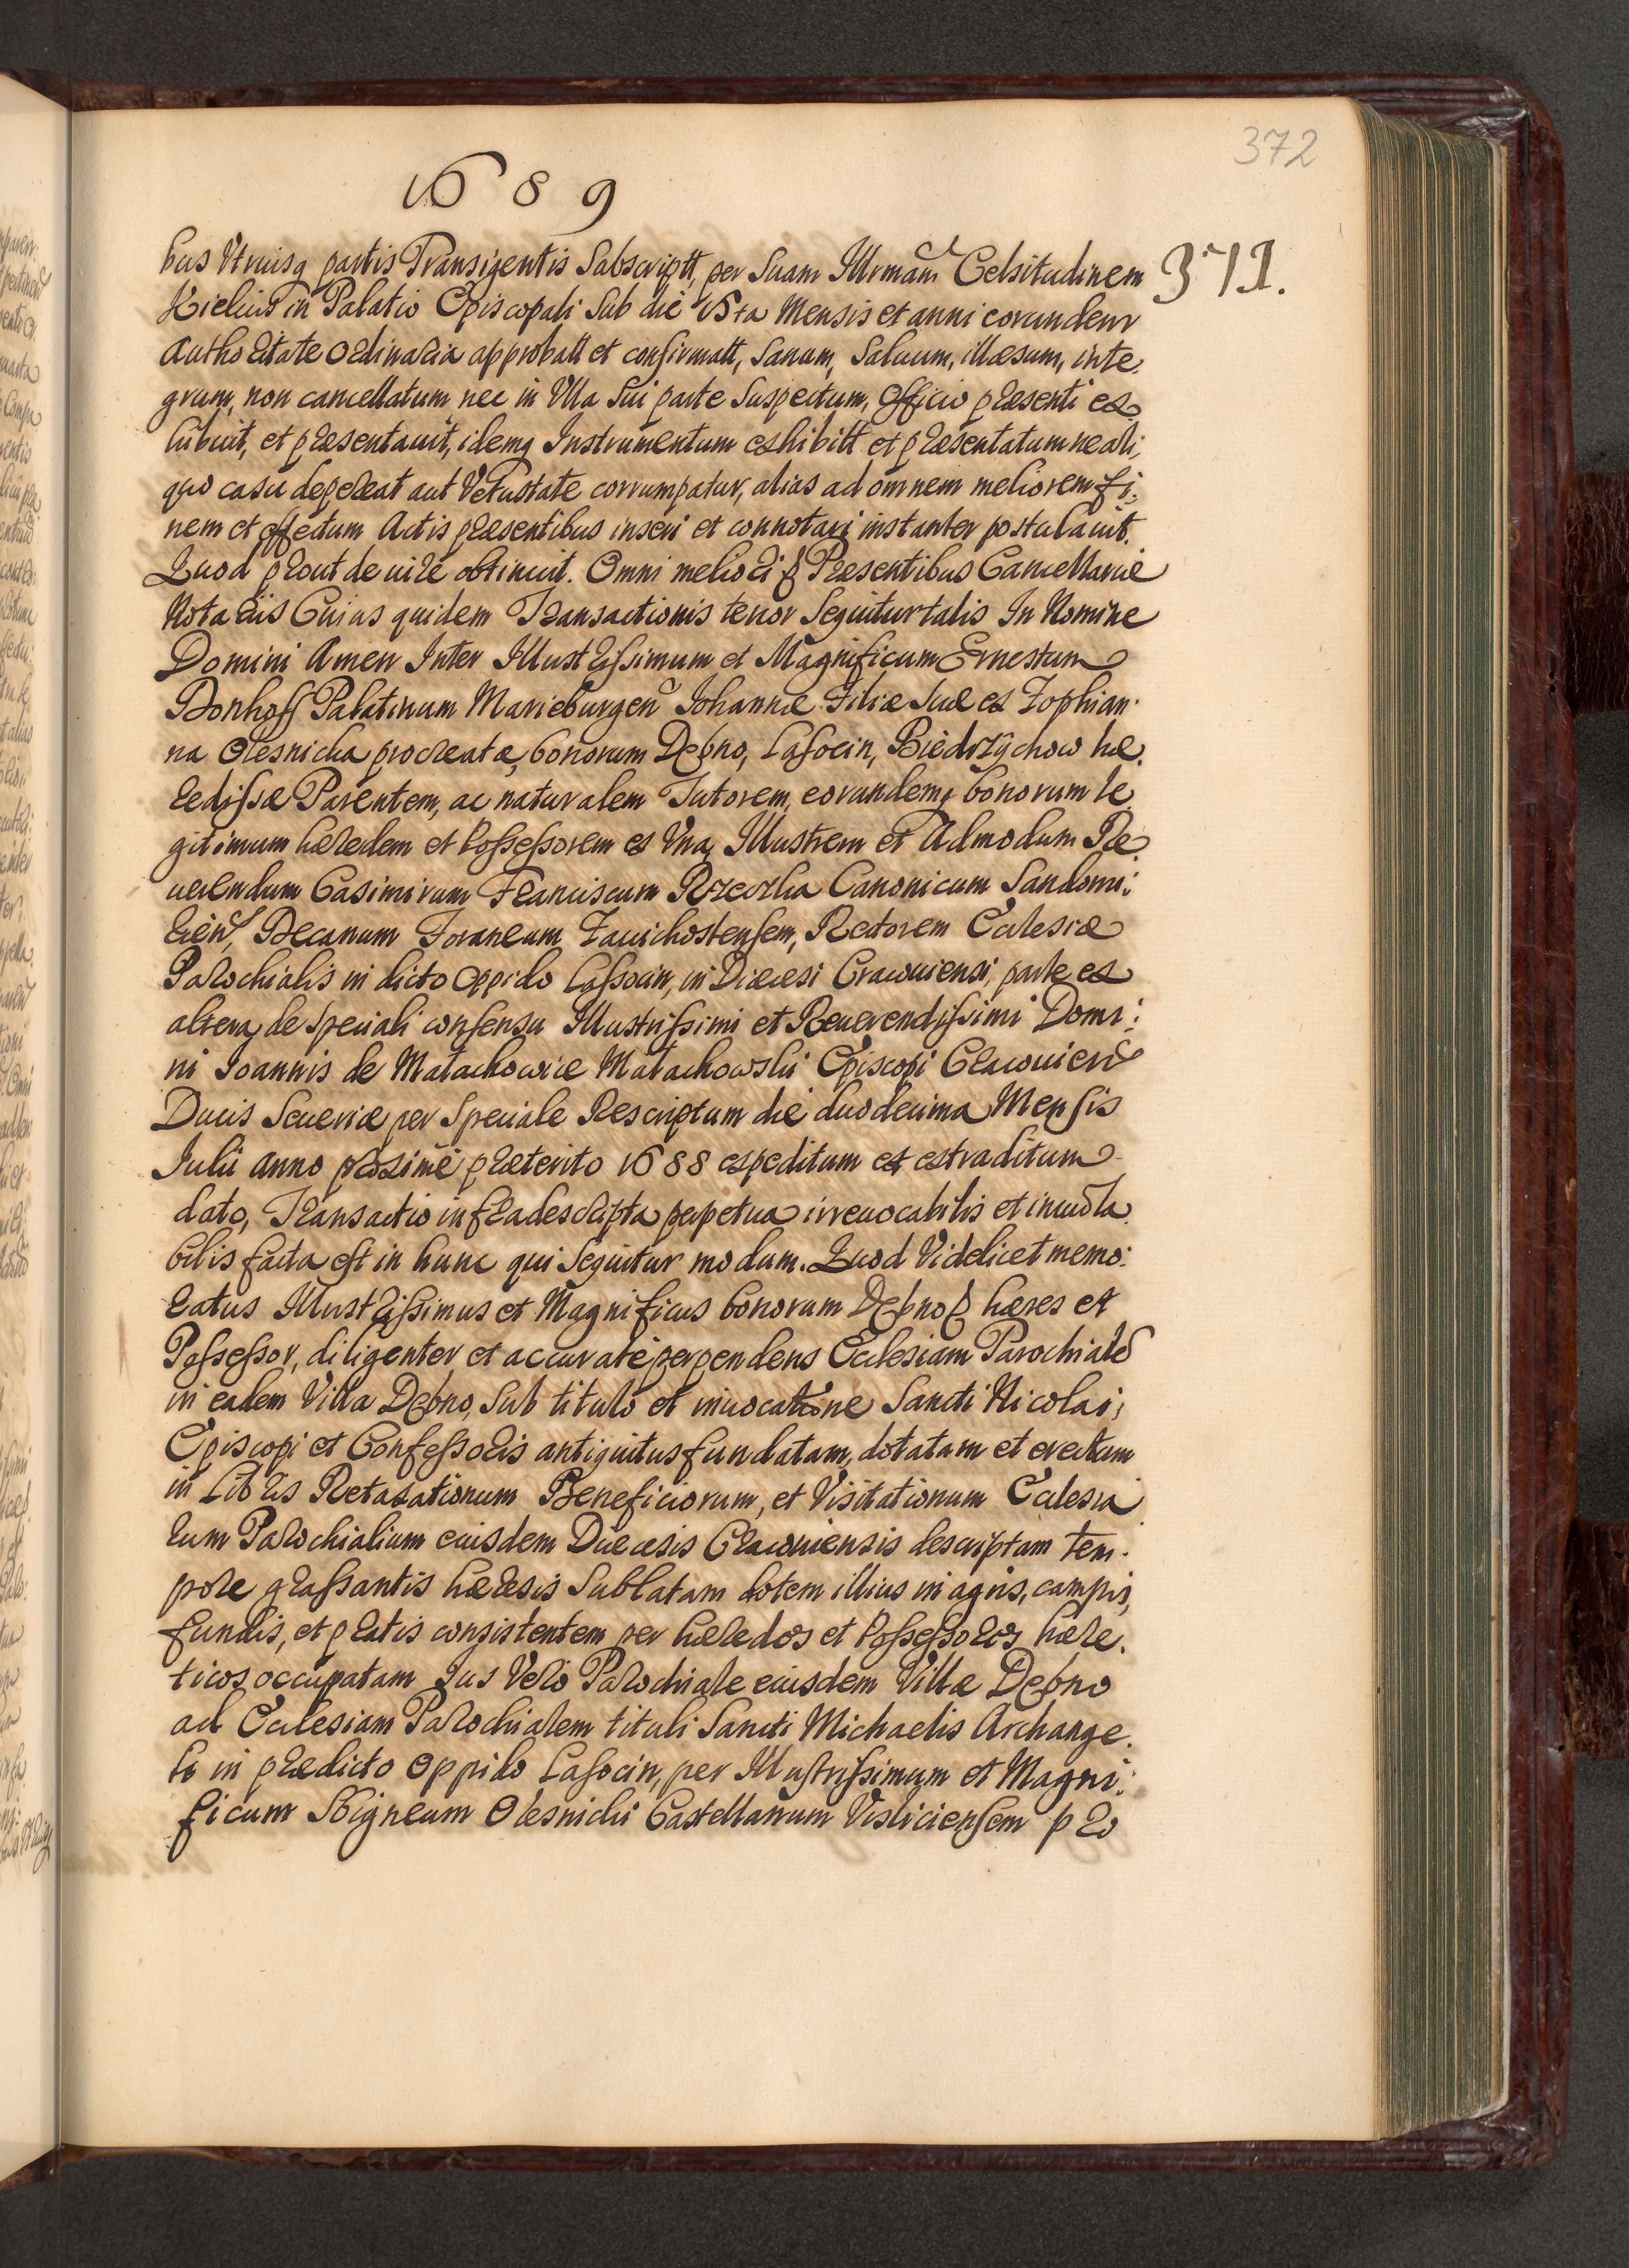 372
1689
371.
bus Utriusq partis Transigentis Subscriptt, per Suam Illrmam Celsitudinem
Kielus in Palatio Episcopali Sub die 15ta Mensis et anni eorundem
Authoritate Ordinaria approbatt et confirmatt, Sanum, Saluum, illæsum, inte,
grum, non cancellatum nec in Ulla Sui parte Suspectum, Officio præsenti ex
hibuit, et præsentauit, idemq Instrumentum exhibitt et præsentatum ne ali,
quo casu depereat aut Vetustate corrumpatur, alias ad omnem meliorem fi,
nem et effectum Actis præsentibus inseri et connotari instanter postulauit.
Quod prout de iure obtinuit. Omni meliori Præsentibus Cancellariæ
Notariis Cuius quidem Transactionis tenor Sequitur talis In Nomine
Domini Amen Inter Illustrissimum et Magnificum Ernestum
Donhoff Palatinum Marieburgen Iohannæ Filiæ Suæ ex Zophian
na Olesnicka procreatæ, bonorum Debno, Lasocin, Biedrzychow hæ,
redissæ Parentem, ac naturalem Tutorem, eorundemq bonorum le
gitimum hæredem et Possessorem ex Una, Illustrem et Admodum Re
uerendum Casimirum Franciscum Rzewska Canonicum Sandomi:
rien, Decanum Foraneum Zauichostensem, Rectorem Eclesiæ
Parochialis in dicto Oppido Lassocin, in Diæcesi Cracouiensi, parte ex
altera, de Speciali consensu Illustrissimi et Reuerendissimi Domi:
ni Ioannis de Małachowice Małachowski Episcopi Cracouien
Ducis Seueriæ per Speciale Rescriptum die duodecima Mensis
Iulii anno proxime præterito 1688 expeditum et extraditum
dato, Transactio infradescripta perpetua irreuocabilis et inuiola
bilis facta est in hunc qui Sequitur modum. Quod Videlicet memo:
ratus Illustrissimus et Magnificus bonorum Debno hæres et
Possessor, diligenter et accuratè perpendens Eclesiam Parochiale
in eadem Villa Debno, Sub titulo et inuocatione Sancti Nicolai,
Episcopi et Confessoris antiquitus fundatam, dotatam et erectam
in Libris Retaxationum Beneficiorum, et Visitationum Eclesia
rum Parochialium eiusdem Diæcesis Cracouiensis descriptam tem
pore grassantis hæresis Sublatam dotem illius in agris, campis,
fundis, et pratis consistentem per hæredes et Possessores hære,
ticos occupatam Ius Vero Parochiale eiusdem Villæ Debno
ad Eclesiam Parochialem tituli Sancti Michaelis Archange,
li in prædicto Oppido Lasocin, per Illustrissimum et Magni:
ficum Sbigneum Olesnicki Castellanum Visliciensem pro